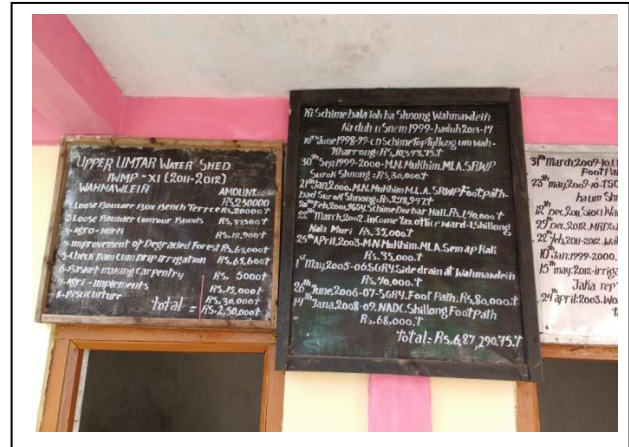 UPPER UMTAR WATER SHED
IWMP - XI (2011-2012)
WAHMAWLEIN AMOUNT
Rs.250000
1-Loose Boulder Box Bench Terrce Rs,20000t
2-Loose Boulder Contour Bunds Rs, 37500t
3-Agro-Horti Rs,12,900t
4-Improvement of Degracied Forest Rs,64,000t
5-Check Dam Cum Drip Irrigation Rs,65,600t
6-Basket making Carpentry Rs, 5000t
7-Agri-implements Rs,15,000t
8-Pisciculture Rs,30,000t
total = Rs.2,50,000t
Ki Schime bala ioh ha Shnong Wahmawlein
Na duh u Snem 1999-haduh 2013-14
10th June 1998-99-CD Scheme Top Tyllong um wah-
Kharrong=Rs,10,343.75.t
30th Sep,1999-2000-M.N.Mukhim.MLA.SRWP
Surok Shnong=Rs,30,000t
21th Jan,2000.M.N.Mukhim M.L.A.SRWP Footpath-
bad Surok Shnong:Rs,2,18,947t
20th Feb,2001,
Scheme Dorbar Hall.Rs,1,40,000t
22th March,2002.inCome tax office ward-1,Shillong
Nala Muri Rs.35,000t
25th April,2003-M.N.Mukhim.MLA.Sem ap Kali
Rs.35,000t
1st May,2005-06.SGRY.Side drain at Wahmawlein
Rs,40,000t
26th June,2006-07-SGRY.Foot Path.Rs,80,000t
14th Jana,2008-09.NADC.Shillong Foot Path
Rs,68,000t
total=Rs,6,87,290.75.t
31th March,2009-10,
Foot Pat
23th may,2009-10-TSC
ha um S
12th Dec,2011 Siou W
29th Dec,2012.MRDS
22th Feb,2011-2012.Wat
10th Jan.1999-2000.
15th may,2012-irriga
Jaka rep
24th april:2003.Wo